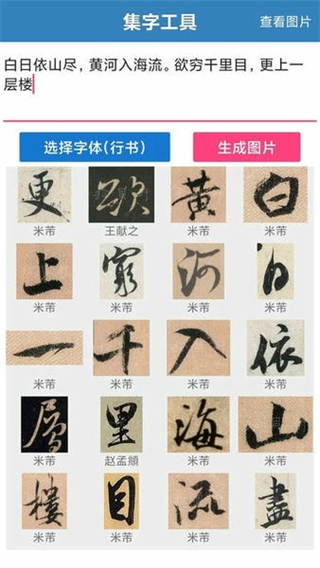 集字工具 查看图片
白日依山尽，黄河入海流。欲穷千里目，更上一
层楼
选择字体(行书) 生成图片
更 欲 黄 白
米芾 王献之 米芾 米芾
上 窮 河 日
米芾 米芾 米芾 米芾
一 千 入 依
米芾 米芾 米芾 米芾
層 里 海 山
米芾 赵孟頫 米芾 米芾
樓 目 流 盡
米芾 米芾 米芾 米芾